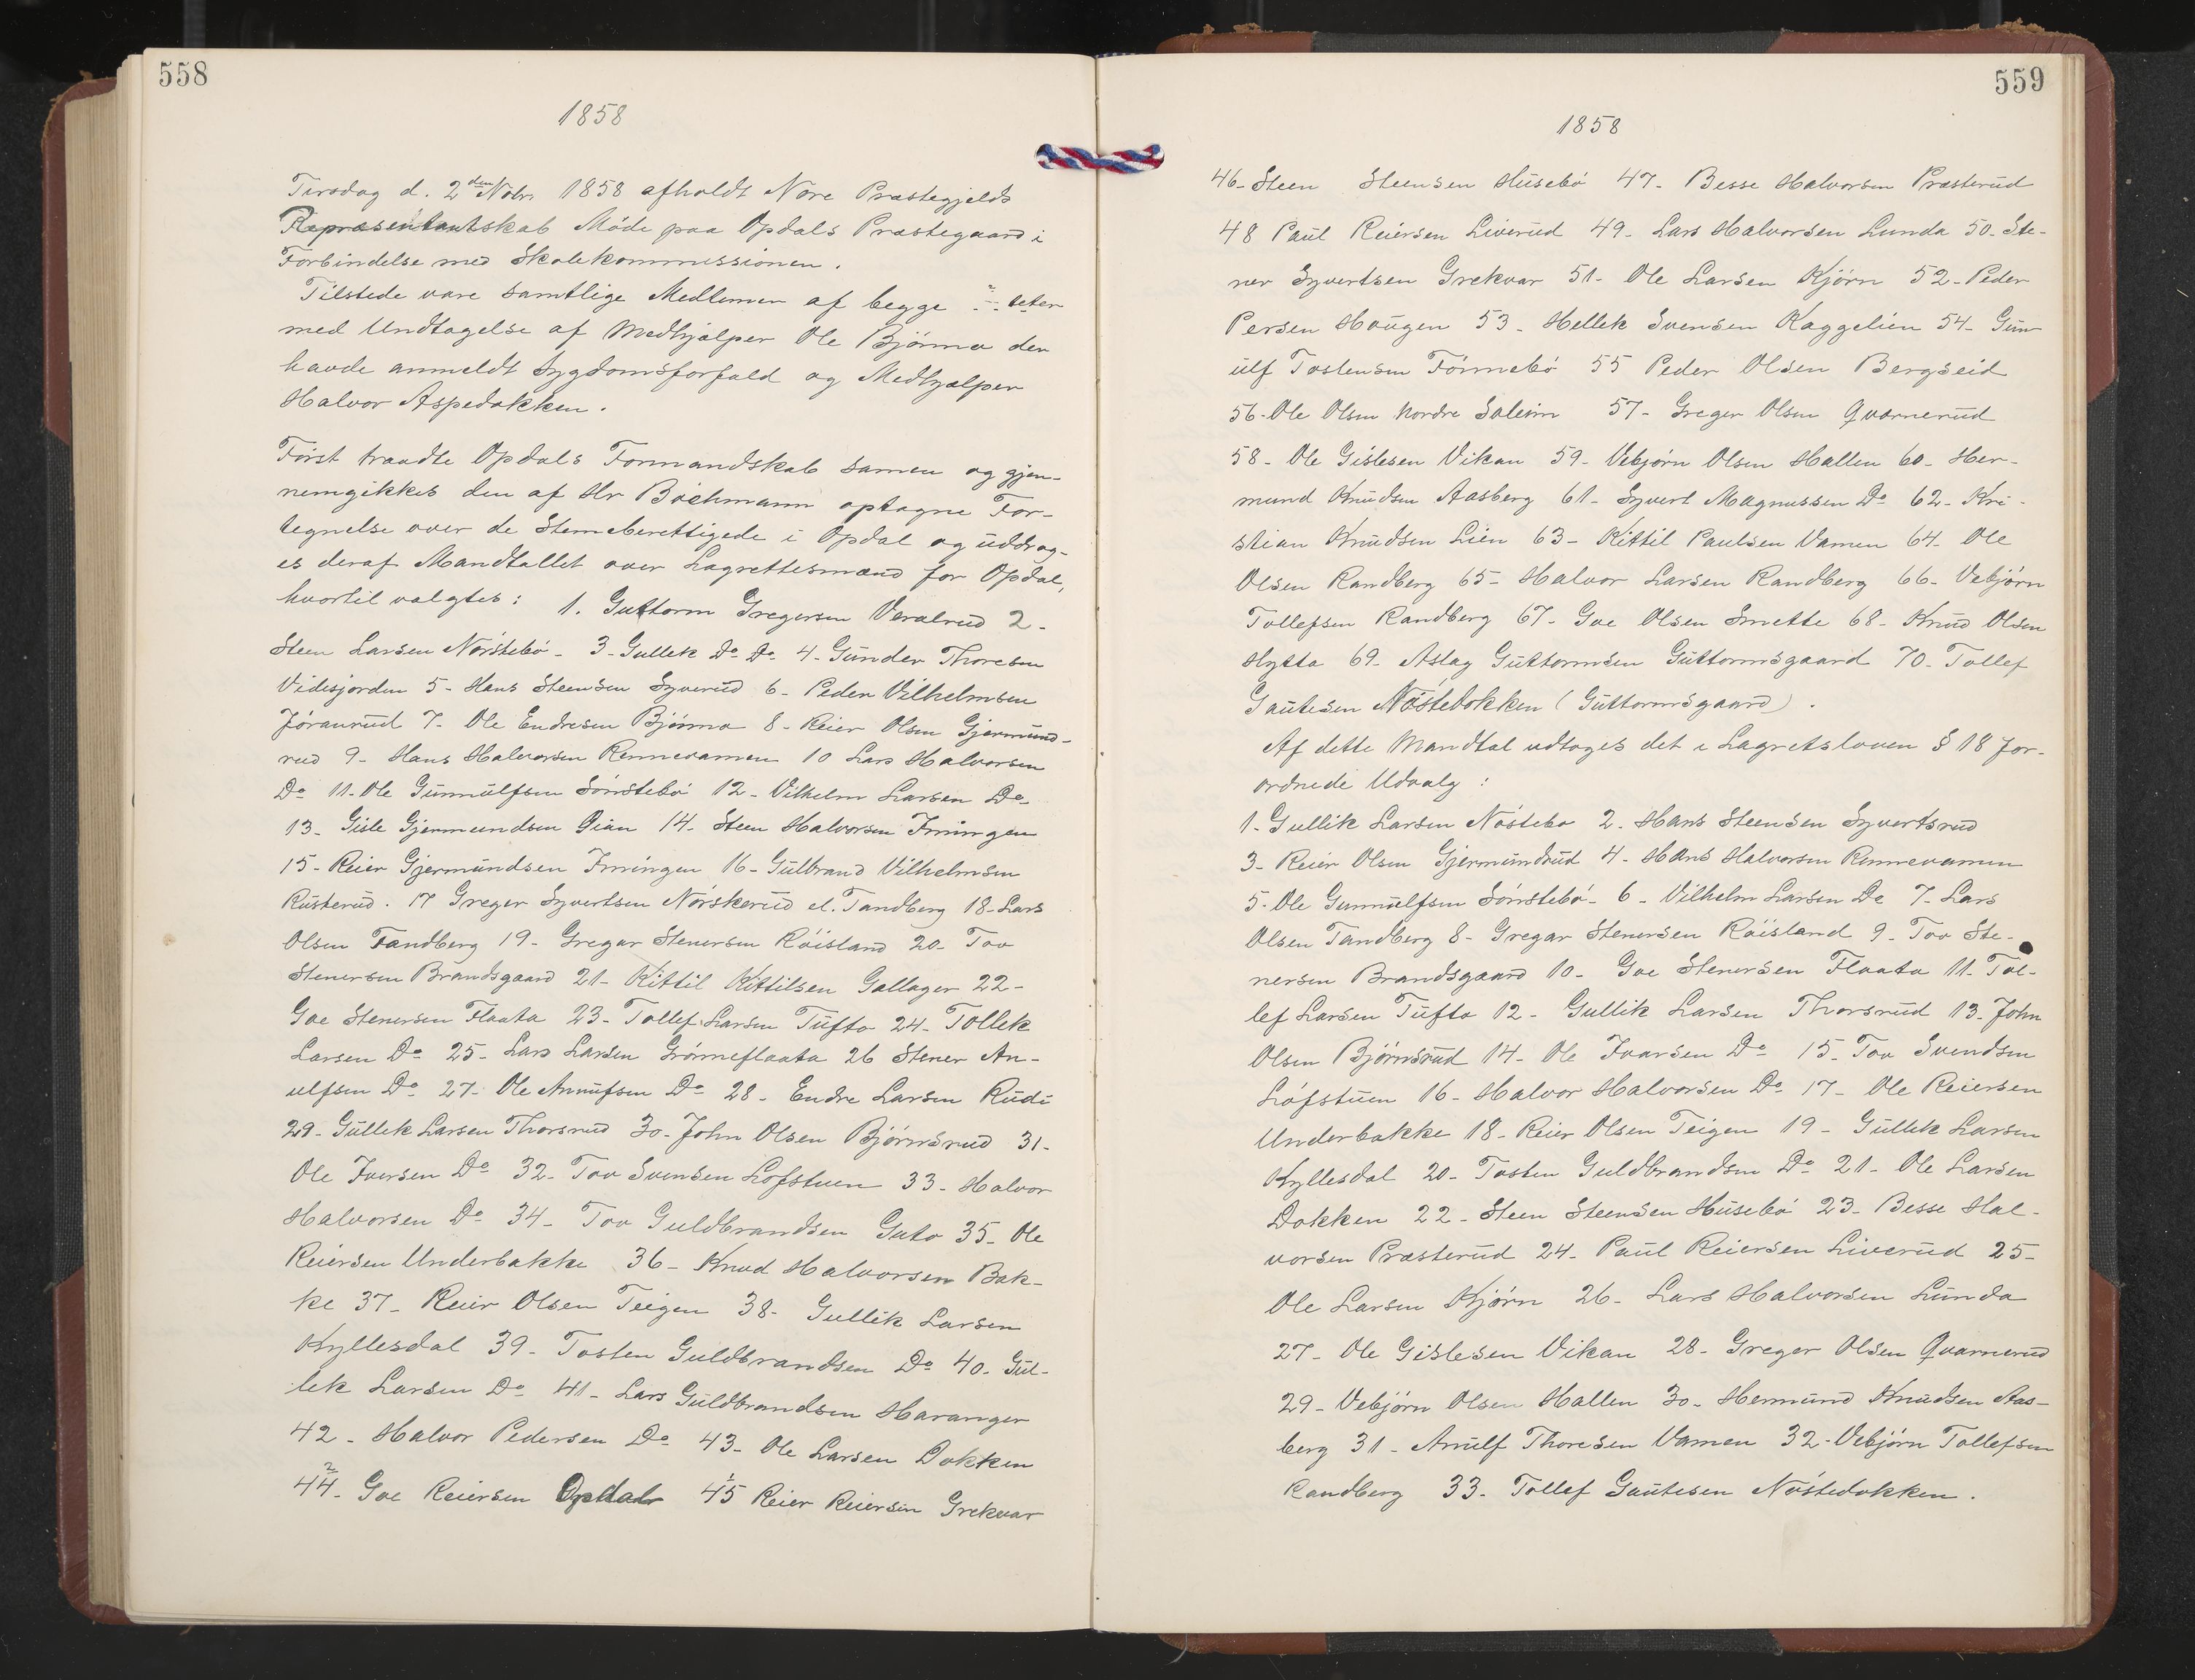 558
1858
Tirsdag d. 2den Nobr. 1858 afholdt Nore Præstegjelds
Repræsentantskab Møde paa Opdals Præstegaard i
Forbindelse med Skolekommissionen.
Tilstede vare samtlige Medlemmer af begge
med Undtagelse af Medhjælper Ole Bjömo der
havde anmeldt Sygdomsforfald og Medhjælper
Halvor Aspedokken.
Først traadte Opdals Formandskab samen og gjen-
nemgikkes den af Hr Bochmann optagne For-
tegnelse over de Stemeberettigede i Opdal og uddrog-
es deraf Mandtallet over Lagrettesmænd for Opdal,
hvortil valgtes: 1. Guttorm Gregersen Veralrud 2-
Steen Larsen Nörstebö - 3- Gullek Do Do 4- Gunder Thoresen
Vidisjorden 5- Hans Steensen Syverud 6- Peder Vilhelmsen
Jöranrud 7- Ole Endresen Bjömo 8- Reier Olsen Gjermund-
rud 9- Hans Halvorsen Rennevamen 10 Lars Halvorsen
Do 11- Ole Gunnulfsen Sönstebö 12- Vilhelm Larsen Do-
13- Gisle Gjermundsen Qian 14- Steen Halvorsen Imingen
15- Reier Gjermundsen Imingen 16- Gulbrand Vilhelmsen
Rusterud. 17 Greger Syvertsen Nörskerud el. Tandberg 18- Lars
Olsen Tandberg 19- Gregar Stenersen Röisland 20- Tov
Stenersen Brandsgaard 21- Kittil Kittilsen Gallager 22-
Goe Stenersen Flaata 23- Tollef Larsen Tufto 24- Tollek
Larsen Do 25- Lars Larsen Grönneflaata 26 Stener An-
ulfsen Do 27- Ole Annufsen Do 28- Endre Larsen Rudi
29- Gullek Larsen Thorsrud 30- John Olsen Björnsrud 31-
Ole Iversen Do 32- Tov Svensen Lofstuen 33- Halvor
Halvorsen Do 34- Tov Guldbrandsen Guto 35- Ole
Reiersen Underbakke 36- Knud Halvorsen Bak-
ke 37- Reier Olsen Teigen 38- Gullik Larsen
Kyllesdal 39- Tosten Guldbrandsen Do 40- Gul-
lek Larsen Do 41- Lars Guldbrandsen Haranger
42- Halvor Pedersen Do 43- Ole Larsen Dokken
44- Goe Reiersen Opdal 45 Reier Reiersen Grekvar
559
1858
46- Steen Steensen Husebö 47- Besse Halvorsen Præsterud
48 Paul Reiersen Liverud 49- Lars Halvorsen Lunda 50- Ste-
ner Syvertsen Grekvar 51- Ole Larsen Kjörn 52- Peder
Persen Haugen 53- Hellek Svensen Kaggelien 54- Gun-
ulf Tostensen Fönnebö 55 Peder Olsen Bergseid
56- Ole Olsen Nordre Soleim 57- Greger Olsen Qvarnerud
58- Ole Gislesen Vikan 59- Vebjörn Olsen Hallen 60- Her-
mund Knudsen Aasberg 61- Syvert Magnussen Do 62- Kri-
stian Knudsen Lien 63- Kittil Paulsen Vamen 64- Ole
Olsen Randberg 65- Halvor Larsen Randberg 66- Vebjörn
Tollefsen Randberg 67- Goe Olsen Smette 68- Knud Olsen
Hytta 69- Aslag Guttormsen Guttormsgaard 70- Tollef
Gautesen Nöstedokken (Guttormsgaard).
Af dette Mandtal udtoges det i Lagretsloven § 18 for-
ordnede Udvalg:
1- Gullik Larsen Nöstebo 2- Hans Steensen Syvertsrud
3- Reier Olsen Gjermundrud 4- Hans Halvorsen Rennevamen
5- Ole Gunnulfsen Sönstebö- 6- Vilhelm Larsen Do 7- Lars
Olsen Tandberg 8- Gregar Stenersen Röisland 9- Tov Ste-
nersen Brandsgaard 10- Goe Stenersen Flaata 11- Tol-
lef Larsen Tufto 12- Gullik Larsen Thorsrud 13- John
Olsen Björnsrud 14- Ole Ivarsen Do 15- Tov Svendsen
Löfstuen 16- Halvor Halvorsen Do 17- Ole Reiersen
Underbakke 18- Reier Olsen Teigen 19- Gullik Larsen
Kyllesdal 20- Tosten Guldbrandsen Do 21- Ole Larsen
Dokken 22- Steen Steensen Husebö 23- Besse Hal-
vorsen Præsterud 24- Paul Reiersen Liverud 25-
Ole Larsen Kjörn 26- Lars Halvorsen Lunda
27- Ole Gislesen Vikan 28- Greger Olsen Qvarnerud
29- Vebjörn Olsen Hallen 30- Hermund Knudsen Aas-
berg 31- Anulf Thoresen Vamen 32- Vebjörn Tollefsen
Randberg 33- Tollef Gautesen Nöstedokken.